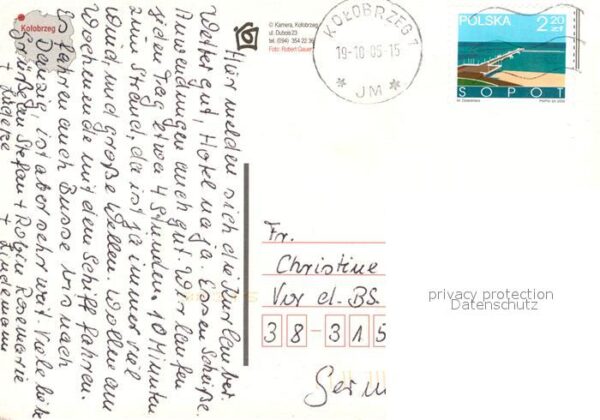 Kołobrzeg
© Kamera, Kołobrzeg
ul. Dubois 23
tel. (094) 354 22 36
Foto: Robert Gauer
KOŁOBRZEG 1
19-10.05-15
* JM *
POLSKA
2,20
ZŁ
SOPOT
Hier melden sich die Kurlauber.
Wetter gut, Hotel na ja. Essen Scheiße.
Anwendungen auch gut. Wir laufen
jeden Tag etwa 4 Stunden. 10 Minuten
zum Strand, da ist ja immer viel
Wind und große Wellen. Wollen am
Wochenende mit dem Schiff fahren.
Es fahren auch Busse bis nach
Danzig, ist aber sehr weit. Viele liebe
Grüße Stefan + Robin Rosemarie
+ Lindemann
Fr.
Christine
Vor d. BS.
38-315
Germ
privacy protection
Datenschutz